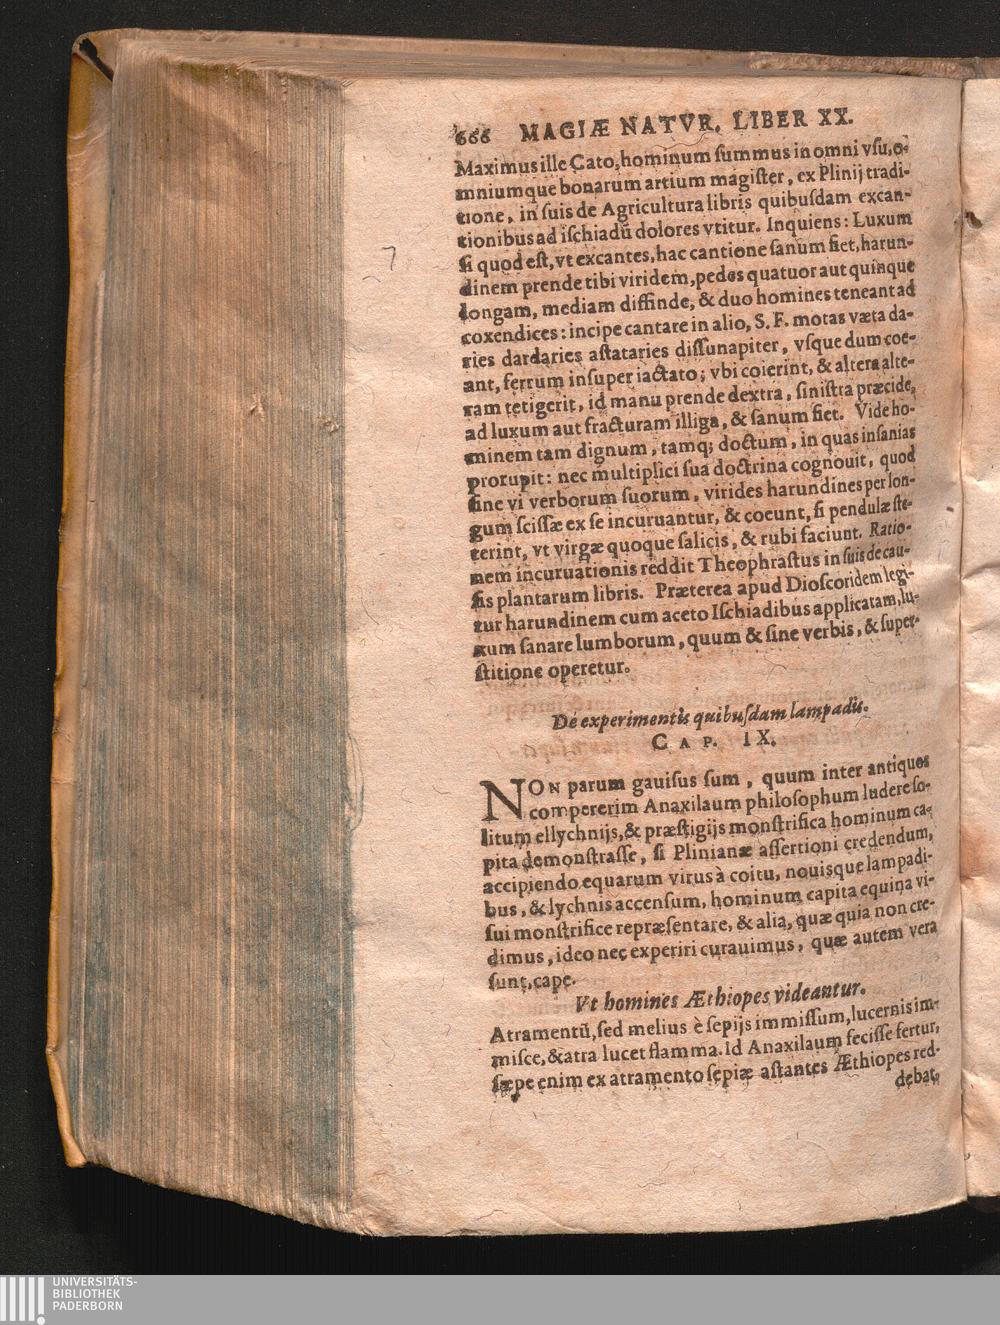 666 MAGIÆ NATVR. LIBER XX.
Maximus ille Cato, hominum ſummus in omni vſu, o-
mniumque bonarum artium magiſter, ex Plinij tradi-
tione, in ſuis de Agricultura libris quibuſdam excan-
tionibus ad iſchiadũ dolores vtitur. Inquiens: Luxum
ſi quod eſt, vt excantes, hac cantione ſanum fiet, harun-
dinem prende tibi viridem, pedes quatuor aut quinque
longam, mediam diffinde, & duo homines teneant ad
coxendices: incipe cantare in alio, S. F. motas væta da-
ries dardaries aſtataries diſſunapiter, vſque dum coe-
ant, ferrum inſuper iactato; vbi coierint, & altera alte-
ram tetigerit, id manu prende dextra, ſiniſtra præcide,
ad luxum aut fracturam illiga, & ſanum fiet. Vide ho-
minem tam dignum, tamq; doctum, in quas inſanias
prorupit: nec multiplici ſua doctrina cognouit, quod
ſine vi verborum ſuorum, virides harundines per lon-
gum ſciſſæ ex ſe incuruantur, & coeunt, ſi pendulæ ſte-
terint, vt virgæ quoque ſalicis, & rubi faciunt. Ratio-
nem incuruationis reddit Theophraſtus in ſuis de cau-
ſis plantarum libris. Præterea apud Dioſcoridem legi-
tur harundinem cum aceto Iſchiadibus applicatam, lu-
xum ſanare lumborum, quum & ſine verbis, & ſuper-
ſtitione operetur.
De experimentis quibuſdam lampadũ.
CAP. IX.
NON parum gauiſus ſum, quum inter antiquos
compererim Anaxilaum philoſophum ludere ſo-
litum ellychnijs, & præſtigijs monſtrifica hominum ca-
pita demonſtraſſe, ſi Plinianæ aſſertioni credendum,
accipiendo equarum virus à coitu, nouisque lampadi-
bus, & lychnis accenſum, hominum capita equina vi-
ſui monſtrifice repræſentare, & alia, quæ quia non cre-
dimus, ideo nec experiri curauimus, quæ autem vera
ſunt, cape.
Vt homines Æthiopes videantur.
Atramentũ, ſed melius è ſepijs immiſſum, lucernis im-
miſce, & atra lucet flamma. Id Anaxilaum feciſſe fertur,
ſæpe enim ex atramento ſepiæ aſtantes Æthiopes red-
debat.
7
UNIVERSITÄTS-
BIBLIOTHEK
PADERBORN